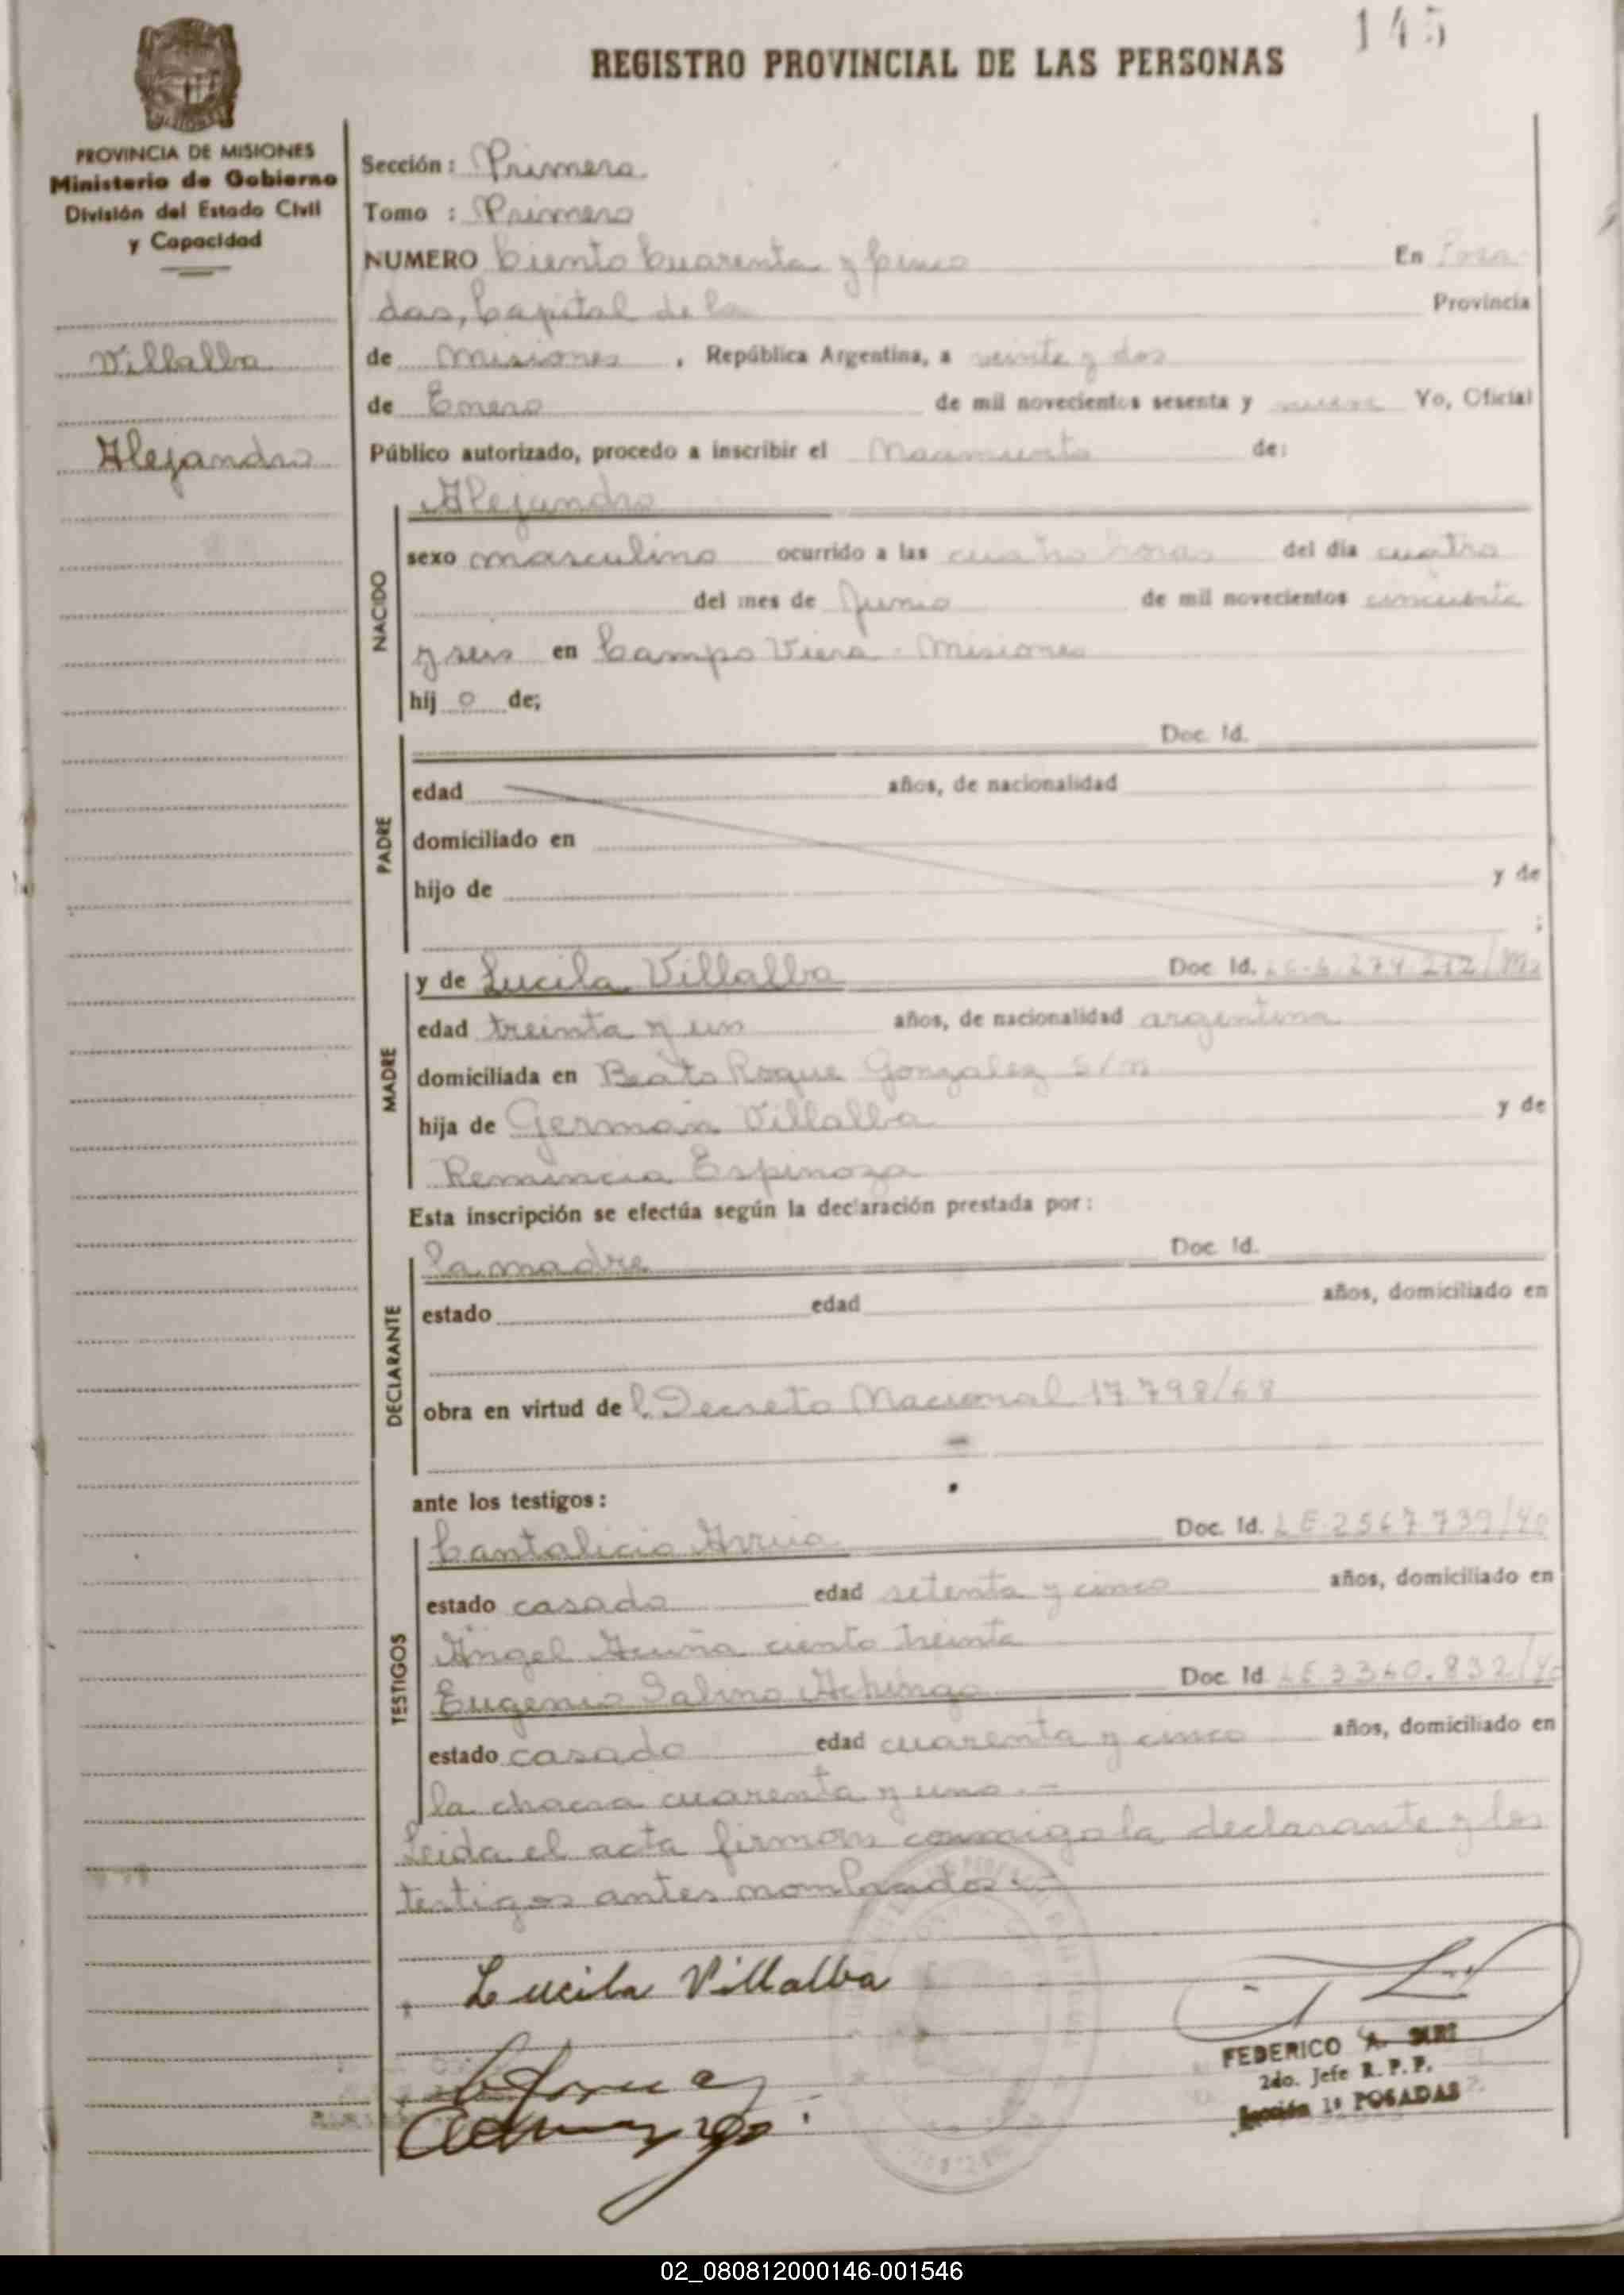 145
REGISTRO PROVINCIAL DE LAS PERSONAS
PROVINCIA DE MISIONES
Ministerio de Gobierno
División del Estado Civil
y Capacidad
Villalba
Alejandro
Sección : Primera
Tomo : Primero
NUMERO Ciento Cuarenta y Cinco En Posa-
das, Capital de la Provincia
de Misiones , República Argentina, a veinte y dos
de Enero de mil novecientos sesenta y nueve Yo, Oficial
Público autorizado, procedo a inscribir el Nacimiento de:
NACIDO
Alejandro
sexo masculino ocurrido a las cuatro horas del día cuatro
del mes de Junio de mil novecientos cincuenta
y seis en Campo Viera - Misiones
hij o de;
PADRE
Doc. Id.
edad años, de nacionalidad
domiciliado en
hijo de y de
;
MADRE
y de Lucila Villalba Doc. Id.
edad treinta y un años, de nacionalidad argentina
domiciliada en Beato Roque Gonzalez s/n
hija de German Villalba y de
Remincia Espinoza
Esta inscripción se efectúa según la declaración prestada por :
DECLARANTE
la madre Doc. Id.
estado edad años, domiciliado en
obra en virtud de l Decreto Nacional 17.798/68
ante los testigos :
TESTIGOS
Cantalicio Arrua Doc. Id. L E 2567739/40
estado casado edad setenta y cinco años, domiciliado en
Angel Acuña ciento treinta
Eugenio Galino Doc. Id L E 3360.832/40
estado casado edad cuarenta y cinco años, domiciliado en
la chacra cuarenta y uno.-
Leida el acta firman conmigo la declarante y los
testigos antes nombrados.-
Lucila Villalba
FEDERICO A.
2do. Jefe R. P. P.
Sección 1ª POSADAS
02_080812000146-001546